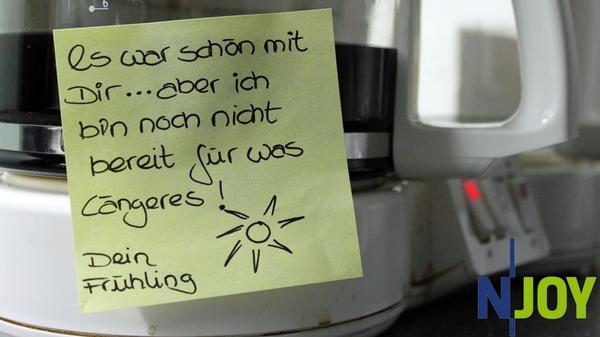 Es war schön mit
Dir...aber ich
bin noch nicht
bereit für was
Längeres!
Dein
Frühling
6
N JOY